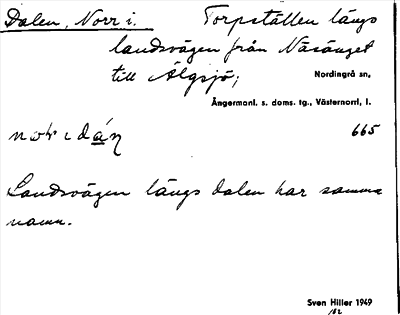 Dalen, Norr i. Torpställen längs
landsvägen från Näsänget
till Älgsjö;
Nordingrå sn,
Ångermanl. s. doms. tg., Västernorrl. l.
665
Landsvägen längs dalen har samma
namn.
Sven Hiller 1949